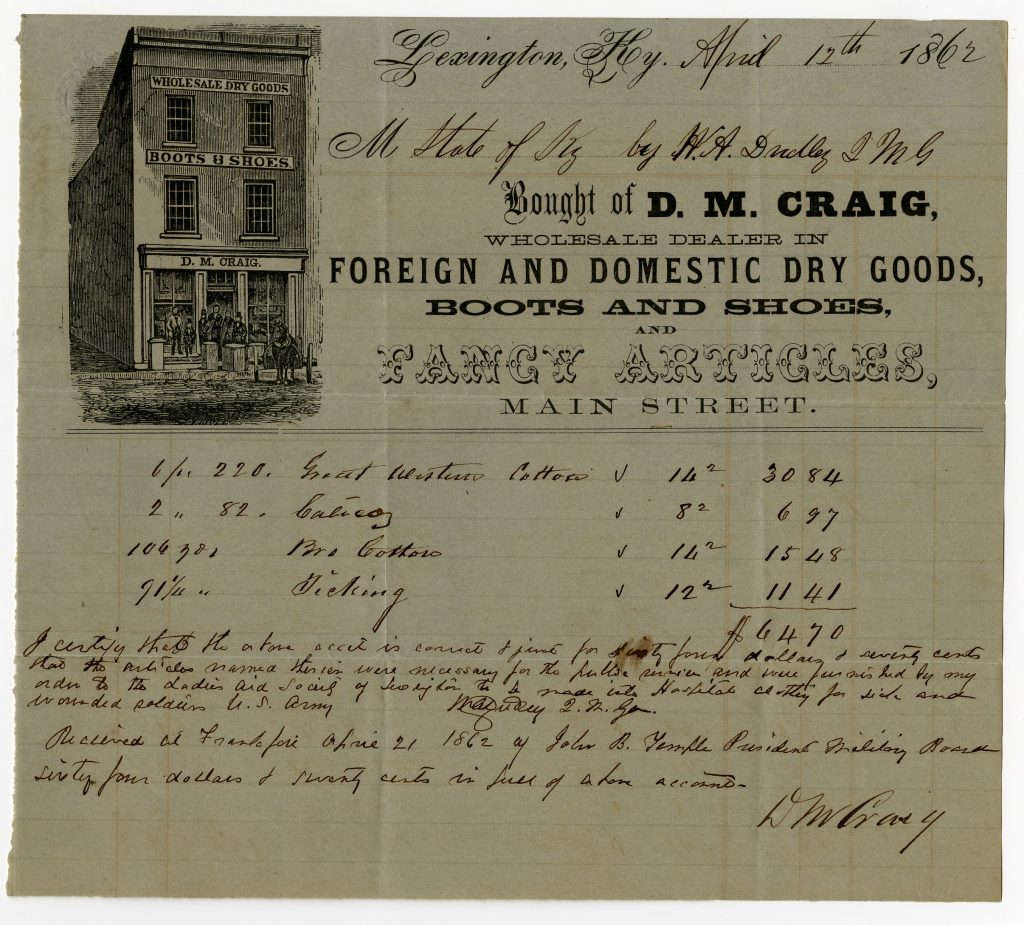 WHOLESALE DRY GOODS
BOOTS & SHOES
D. M. CRAIG.
Lexington, Ky. April 12th 1862
M State of Ky by W. A. Dudley Q M G
Bought of D. M. CRAIG,
WHOLESALE DEALER IN
FOREIGN AND DOMESTIC DRY GOODS,
BOOTS AND SHOES,
AND
FANCY ARTICLES,
MAIN STREET.
6 ps. 220. Great Western Cotton √ 14 30 84
2 " 82. Calico √ 8 6 97
106 yds Bro Cotton √ 14 15 48
91¼ " Ticking √ 12 11 41
$ 64 70
I certify that the above acct is correct & just for sixty four dollars & seventy cents
that the articles named therein were necessary for the public service and were furnished by my
order to the Ladies Aid Society of Lexington to be made into Hospital clothes for sick and
wounded soldiers U.S. Army W A Dudley Q. M. Gen.
Received at Frankfort April 21 1862 of John B. Temple President Military Board
sixty four dollars & seventy cents in full of above account
D M Craig